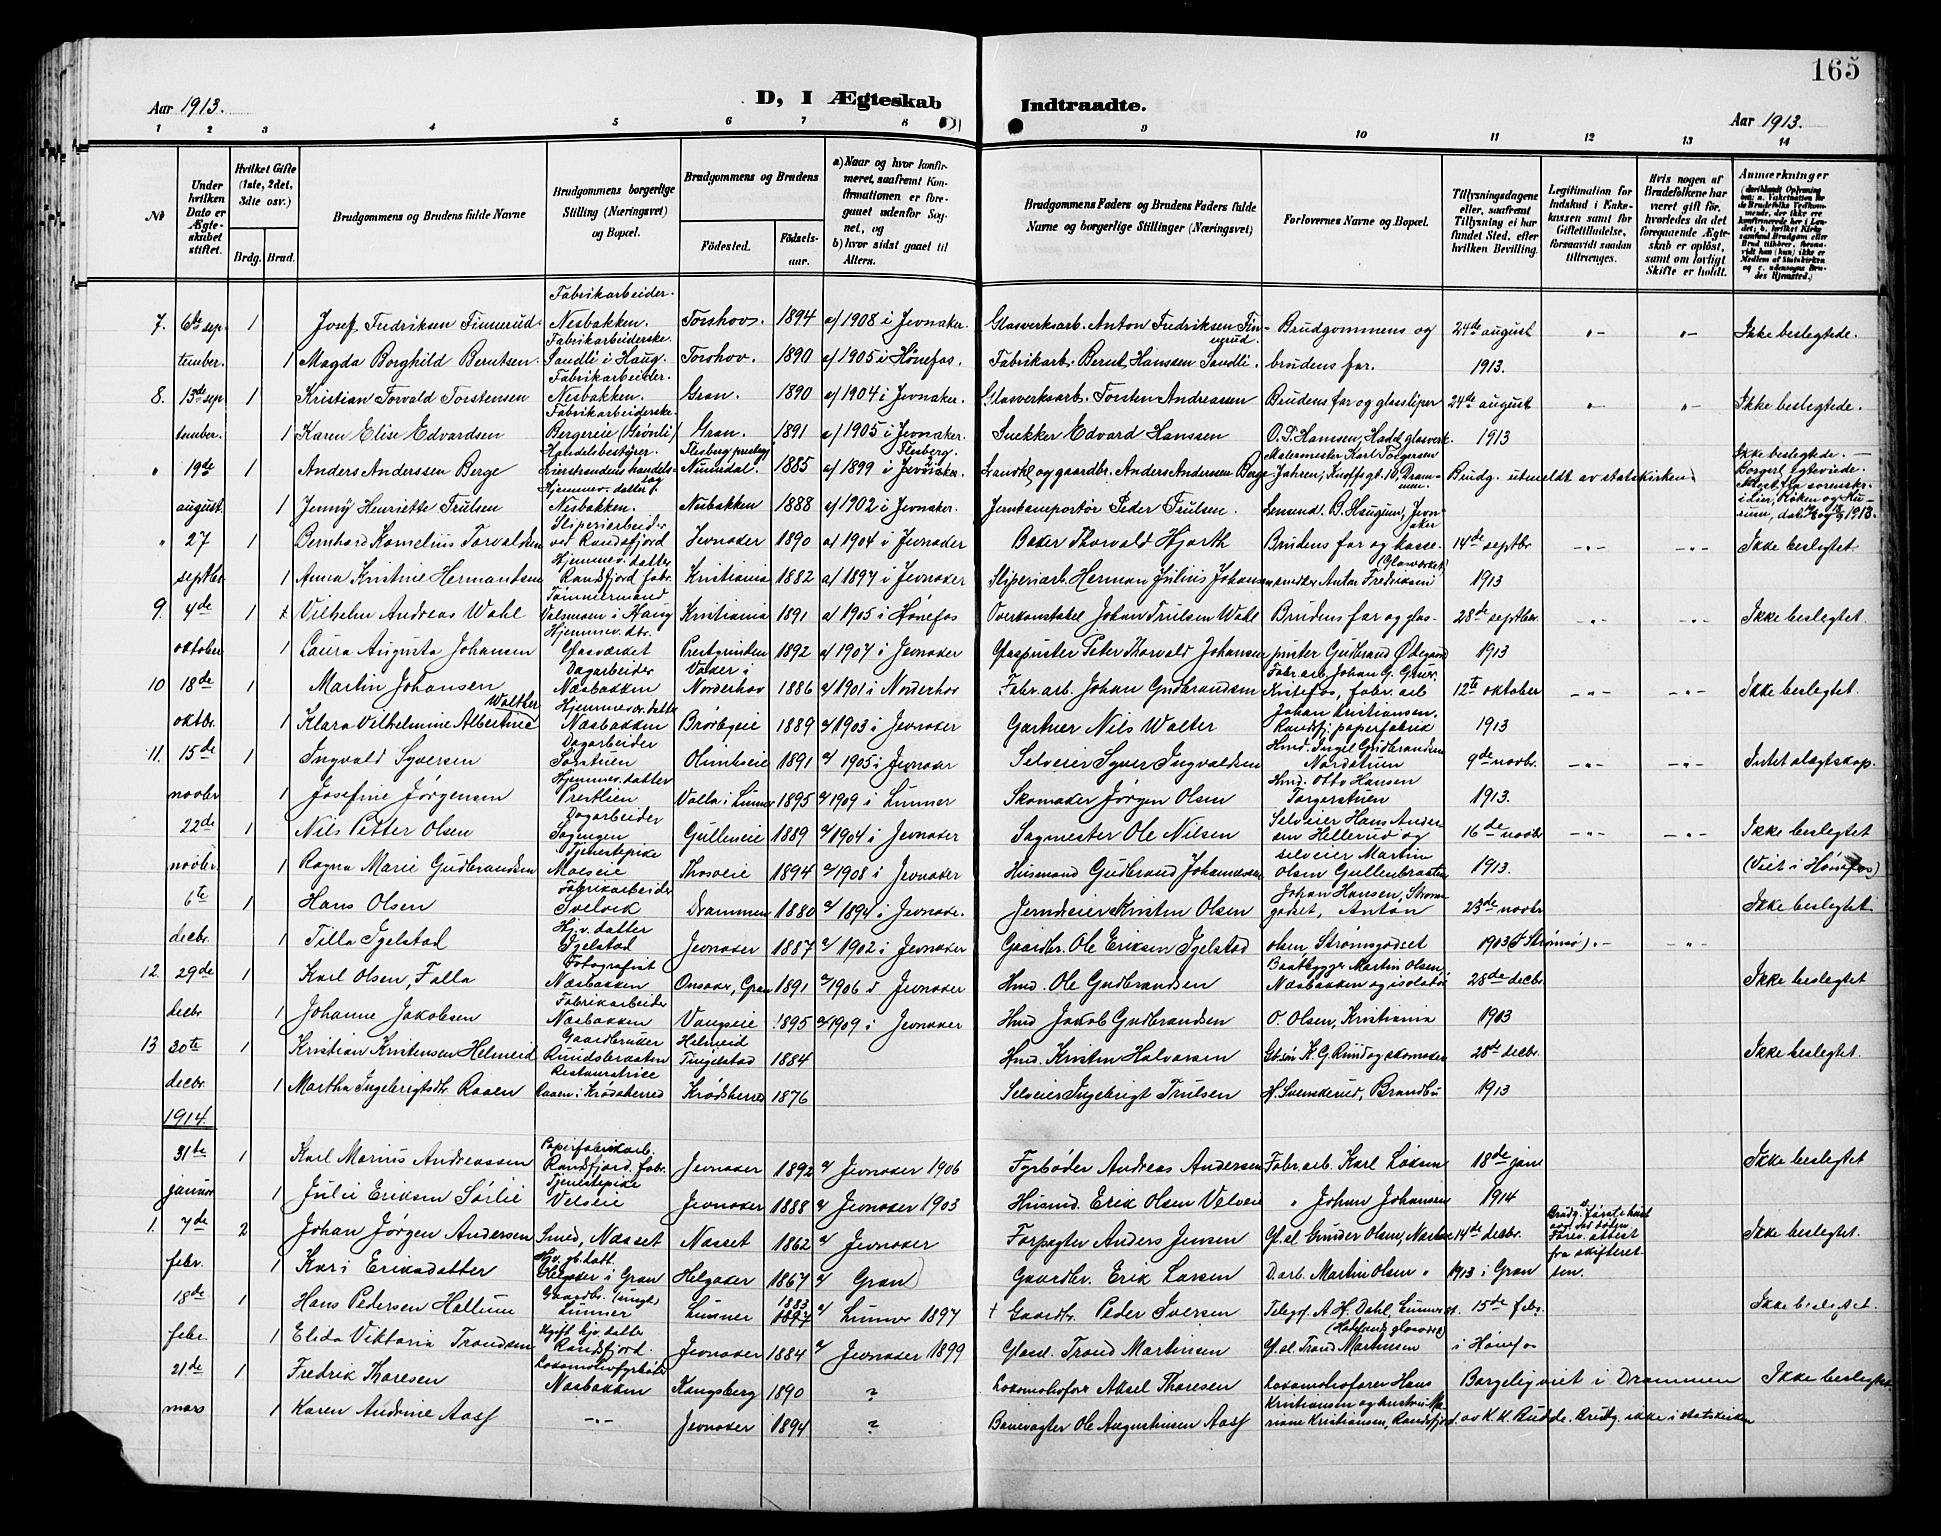 165
Aar 1913. D, I Ægteskab Indtraadte. Aar 1913.
1 2 3 4 5 6 7 8 9 10 11 12 13 14
No
Under hvilken Dato er Ægteskabet stiftet.
Hvilket Gifte (1ste, 2det, 3die osv.)
Brdg. Brud.
Brudgommens og Brudens fulde Navne
Brudgommens borgerlige Stilling (Næringsvei) og Bopæl.
Brudgommens og Brudens
Födested. Födselsaar.
a) Naar og hvor konfirmeret, saafremt Konfirmationen er foregaaet udenfor Sognet, og
b) hvor sidst gaaet til Alters.
Brudgommens Faders og Brudens Faders fulde Navne og borgerlige Stillinger (Næringsvei)
Forlovernes Navne og Bopæl.
Tillysningsdagene eller, saafremt Tillysning ei har fundet Sted, efter hvilken Bevilling.
Legitimation for Indskud i Enkekassen samt for Giftetilladelse, forsaavidt saadan tiltrænges.
Hvis nogen af Brudefolkene har været gift för, hvorledes da det foregaaende Ægteskab er oplöst, samt om lovligt Skifte er holdt.
Anmærkninger
7. 6te sep- 1 Josef Fredriksen Tinnerud Fabrikarbeider. Nesbakken. Torshov. 1894 a/ 1908 i Jevnaker. Glasverksarb. Anton Fredriksen Tinnerud. Brudgommens og 24de august -"- -"- Ikke beslegtede.
tember. 1 Magda Borghild Berntsen Fabrikarbeiderske. Sandli i Haug. Torshov. 1890 a/ 1905 i Hønefos. Fabrikarb. Bernt Hanssen Sandli. brudens far. 1913.
8. 13de sep 1 Kristian Torvald Torstensen Fabrikarbeider. Nesbakken. Gran. 1890 a/ 1904 i Jevnaker. Glasverksarb. Torsten Andreasen Brudens far og glassliper 24de august " "- Ikke beslegtede.
tember. 1 Karen Elise Edvardsen Fabrikarbeiderske. Bergereie (Grønli) Gran. 1891 a/ 1905 i Jevnaker. Snekker Edvard Hanssen O. P. Hansen, Hadel. glasverk. 1913
" 19de 1 Anders Anderssen Berge Handelsbestyrer. Flesberg prestegj. Numedal. 1885 a/ 1899 i Flesberg. Landhl. og gaardbr. Anders Andersen Berge Malermester Karl Torgersen Jahren, Knoffsgt. 10, Drammen. Brudg. utmeldt av statskirken. Ikke beslegtede. — Borgerl. egteviede.
august. 1 Jenny Henriette Trulsen Hjemmev. datter Nesbakken. Nesbakken 1888 a/ 1902 i Jevnaker. Jernkonportør Peder Trulsen. Lensmd. B. Haugum, Jevnaker
" 27 1 Bernhard Kornelius Torvaldsen Sliperiarbeider ved Randsfjord Jevnaker 1890 a/ 1904 i Jevnaker Baker Thorvald Hjorth Brudens far og kasse- 14de septbr -"- -"- Ikke beslegtet
septbr 1 Anna Kristine Hermandsen Hjemmev. datter Randsfjord fabr. Kristiania 1882 a/ 1897 i Jevnaker Sliperiarb. Herman Julius Johansen smedker Anton Fredriksen (Glasverket) 1913
9. 4de 1 Vilhelm Andreas Wahl Tømmermand Valsmoen i Haug Kristiania 1891 a/ 1905 i Hønefos Overkonstabel Johan Trulsen Wahl Brudens far og glas- 28de septbr. -"- -"- Ikke beslegtet
oktober 1 Laura Augusta Johansen Hjemmev. dtr. Glasværket Prestgrinden 1892 a/ 1907 i Jevnaker Glaspuster Peter Thorvald Johansen puster Gudbrand Ødegaard 1913
10 18de 1 Martin Johansen Dagarbeider Næsbakken Vaker i Norderhov 1886 a/ 1901 i Norderhov Fabr. arb. Johan Gudbrandsen Fabr. arb. Johan G. Kistefos, fabr. arb 12te oktober -"- -"- Ikke beslegtet.
oktbr. 1 Klara Vilhelmine Albertine Walther Hjemmev. datter Næsbakken Brørbyeie 1889 a/ 1903 i Jevnaker Gartner Nils Walter Johan Kristiansen. Randsfj. papirfabrik 1913
11. 15de 1 Ingvald Syversen Dagarbeider Olimbeie 1891 a/ 1905 i Jevnaker Selveier Syver Ingvaldsen Hmd. Ingel Gudbrandsen Nordstuen 9de novbr. -"- -"- Intet slægtskap.
novbr 1 Josefine Jørgensen Hjemmev. datter Prestlien Volla i Lunner 1895 a/ 1909 i Lunner Skomaker Jørgen Olsen Hmd. Otto Hansen Torgerstuen 1913.
22de 1 Nils Petter Olsen Dagarbeider Sagengen Gulleneie 1889 a/ 1904 i Jevnaker Sagmester Ole Nilsen Selveier Hans Andersen Hellerud og 16de novbr -"- -"- Ikke beslegtet
novbr. 1 Ragna Marie Gudbrandsen Tjenestepike Moeseie Thosoeie 1894 a/ 1908 i Jevnaker Husmand Gudbrand Johannesen selveier Martin Olsen Gullenbraaten 1913. (Viet i Hønefos)
6te 1 Hans Olsen Fabrikarbeider Svelvik Drammen 1880 a/ 1894 i Jevnaker. Jerndreier Kristen Olsen Johan Hansen, Strømsgodset, Anton 23de novbr Ikke beslegtet
decbr. 1 Tilla Igelstad Hj.v. datter Igelstad Jevnaker 1887 a/ 1902 i Jevnaker Gaardbr. Ole Eriksen Igelstad Olsen Strømsgodset 1903 (i Strømsø) -"- -"-
12. 29de 1 Karl Olsen Falla Fotografist Næsbakken Onsaker, Gran 1891 a/ 1906 i Jevnaker Hmd. Ole Gudbrandsen Baatbygger Martin Olsen, Næsbakken og isolatør 28de decbr. Ikke beslegtet
decbr 1 Johanne Jakobsen Fabrikarbeider Næsbakken Vangseie 1895 a/ 1909 i Jevnaker Hmd Jakob Gudbrandsen O. Olsen, Kristiania 1903
13 20te 1 Kristian Kristensen Helmeid Gaardbruker Ruudsbraaten Helmeid Tingelstad 1884 Hmd. Kristen Halvorsen K. G. Ruud og skomaker 28de decbr. Ikke beslegtet.
decbr. 1 Martha Ingebrigtsdtr Raaen Restauratrice Raaen i Krødsherred Krødsherred 1876 Selveier Ingebrigt Trulsen H. Svenskerud, Brandbu 1913
1914.
31te 1 Karl Marius Andreassen Papirfabrikarb. Randsfjord. fabr. Jevnaker 1892 a/ Jevnaker 1906 Fyrbøder Andreas Andersen Fabr. arb. Karl Løken 18de jan Ikke beslegtet
januar 1 Julie Eriksen Sørlie Tjenestepike Velseie Jevnaker 1888 a/ Jevnaker 1903 Husmd. Erik Olsen Velseie " Johan Johansen 1914
1. 7de 2 Johan Jørgen Andersen Smed, Næsset Næsset 1862 a/ Jevnaker Forpagter Anders Jensen Gl. sl. Gunder Olsen, Næsset 14de decbr. Brudg. første hustru død. attest fra skifteretten. Ikke beslegtet.
febr. 1 Kari Eriksdatter Hjv. gb. datt. Helgaker i Gran Helgaker 1867 a/ Gran Gaardbr. Erik Larsen D. arb. Martin Olsen " 1913 i Gran
18de 1 Hans Pedersen Hallum Gaardbr. (ungk) Lunner Lunner 1883 a/ Lunner 1897 + Gaardbr. Peder Iversen Telegrf. A. H. Dahl, Lunner st. 15de febr. Ikke beslegtet.
febr. 1 Elida Viktoria Trondsen Ugift hjv. datter Randsfjord. Jevnaker 1884 a/ Jevnaker 1899 Glassl. Trond Martinsen (Hadelands glasverk) Gl. sl. Trond Martinsen i Hønefos
21de 1 Fredrik Thoresen Lokomotivfyrbøter Næsbakken Kongsberg 1890 ? Lokomotivfører Aksel Thoresen Lokomotivfører Hans Kristiansen og hustru Borgerlig viet i Drammen Ikke beslegtet
mars 1 Karen Andrine Aass -"- Jevnaker 1894 ? Banevogter Ole Augustinsen Aass Mariane Kristiansen, Randsfjord. av K. K. Budde. Brudg. ikke i statskirken